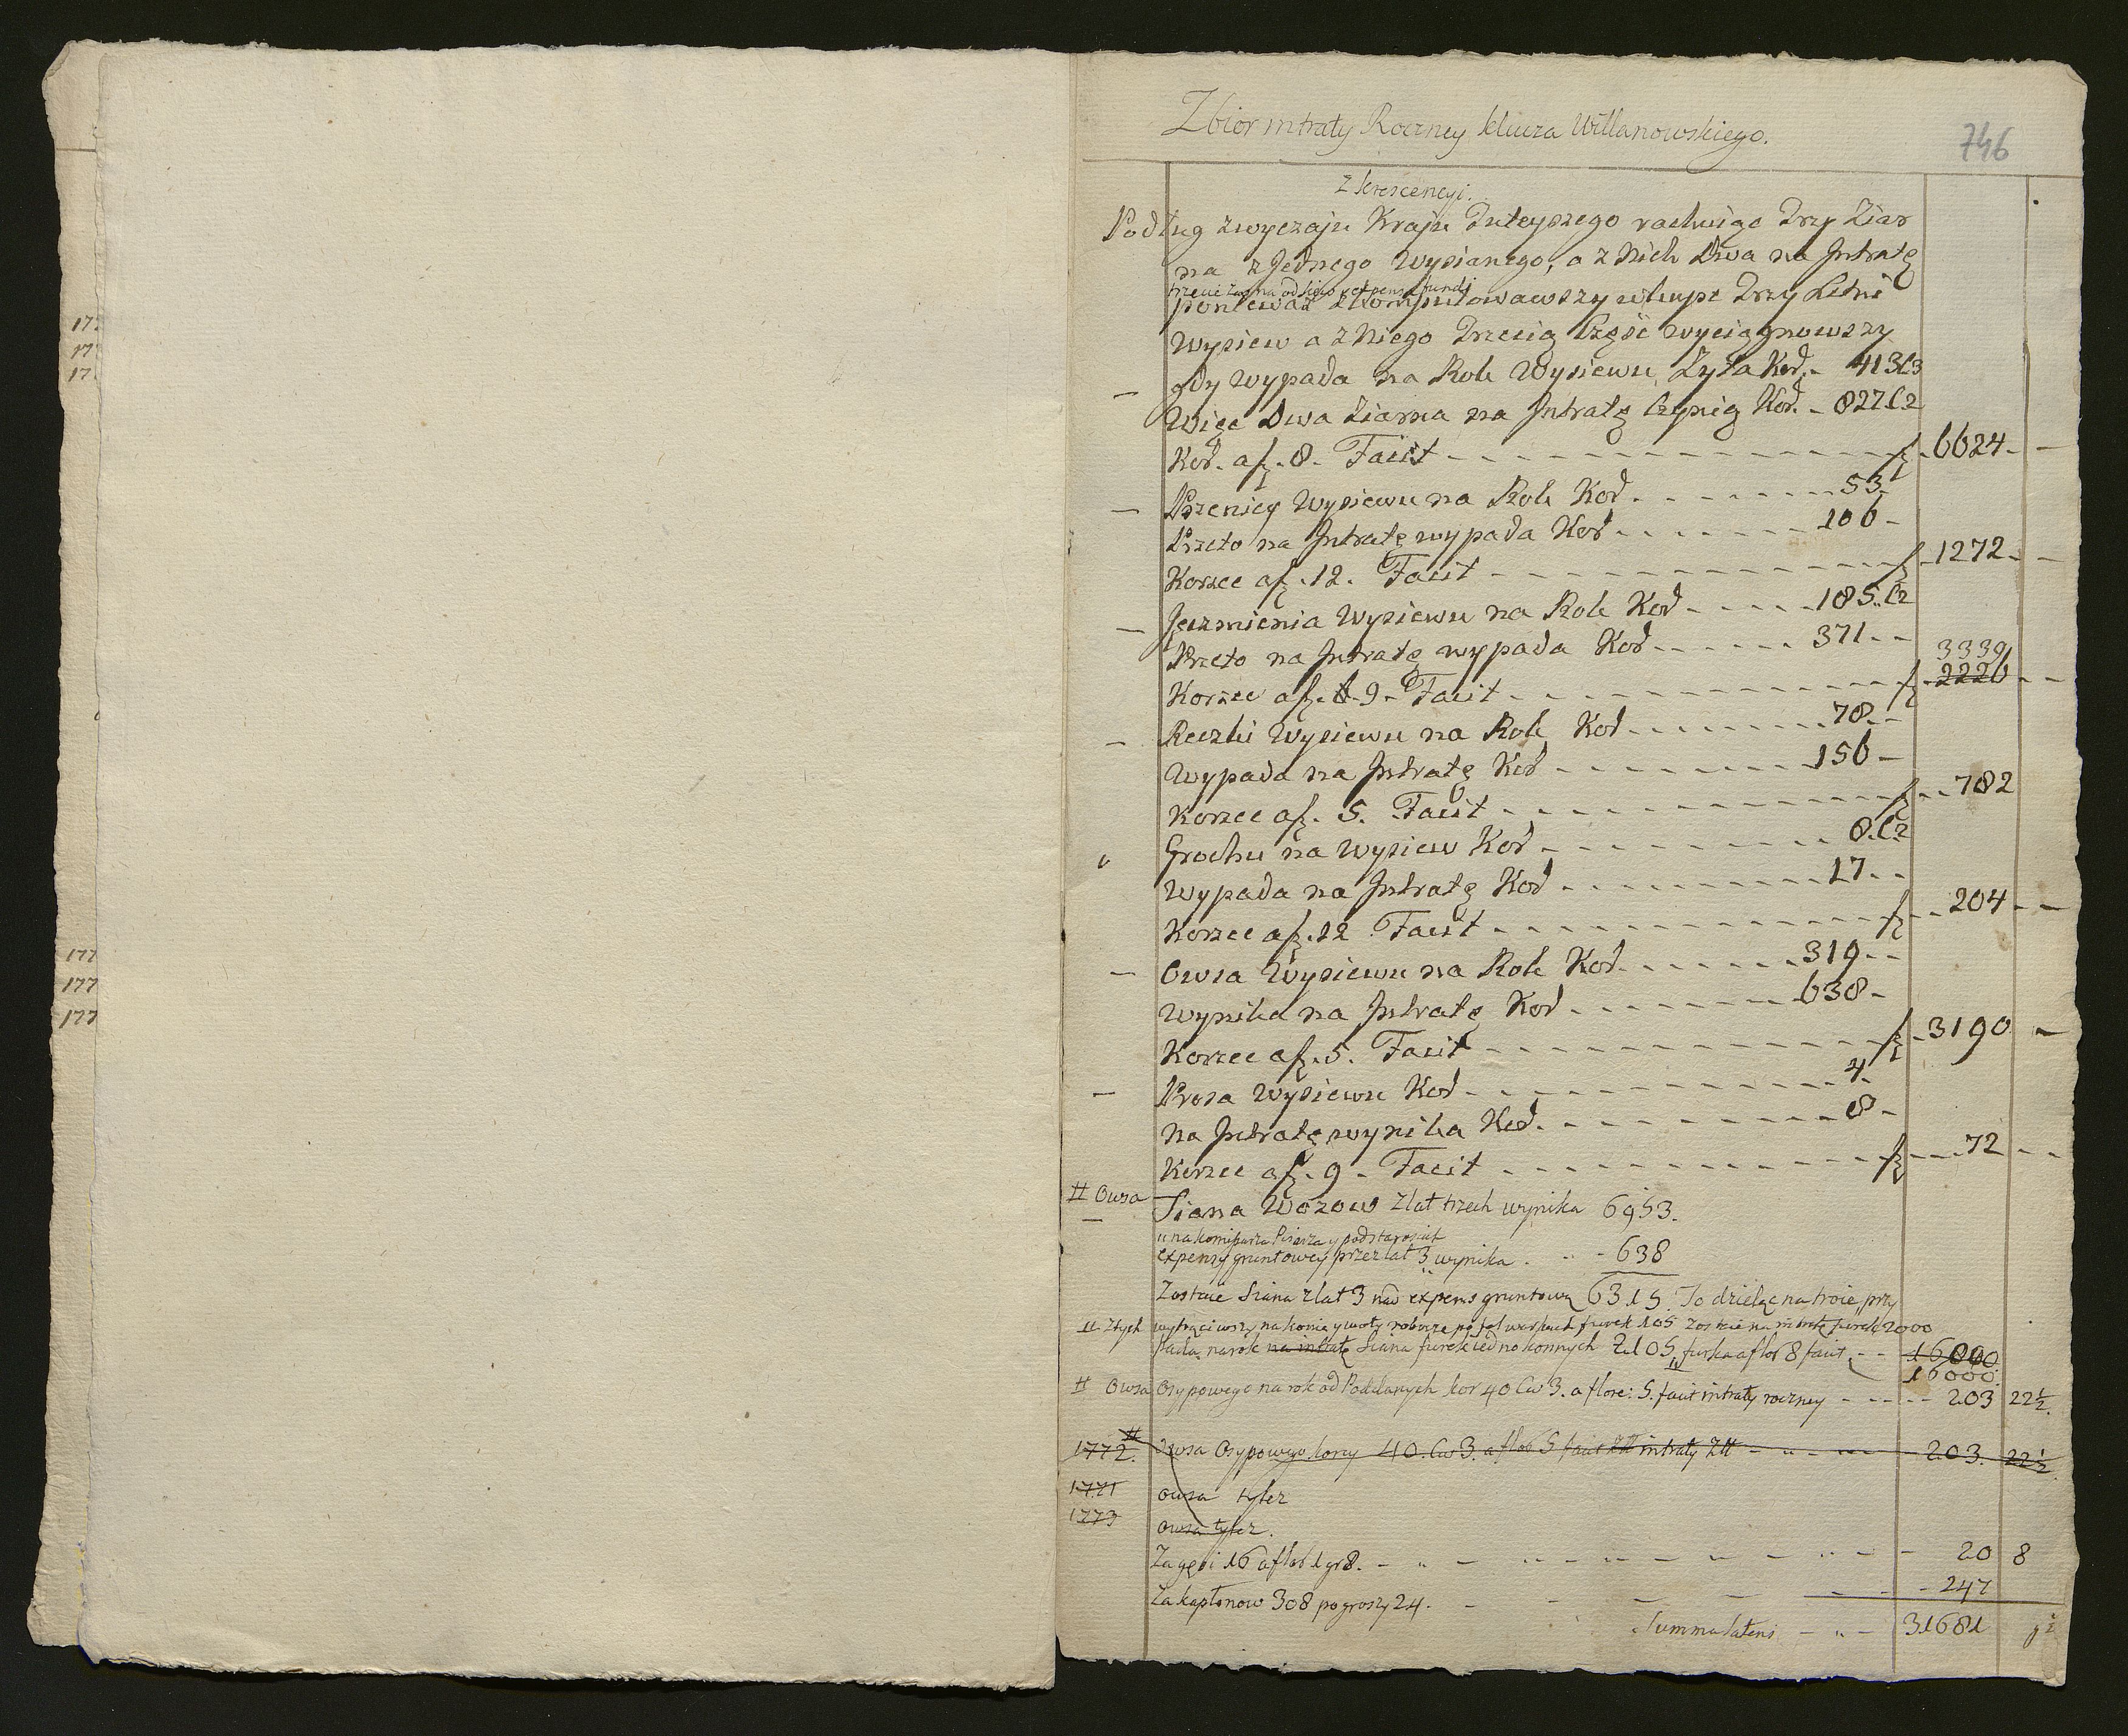 177
17
17
177
177
177
Zbior intraty Roczney klucza Willanowskiego.
746
Z krescencyi.
Podług zwyczaju Kraju Tuteyszego rachuiąc Trzy Ziar
na z Jednego Wysianego, a z Nich Dwa na Intratę
trzecie zas na odsiew y expens fundi
ponieważ zkomputowawszy wkupę Trzy Letni
Wysiew a z Niego Trzecią Częsć wyciągnowszy
gdy Wypada na Rok Wysiewu Zyta Kor. - 413 C3
Więc Dwa Ziarna na Intratę Czynią Kor. - 827. C2
Kor. a f. 8. Facit - - - f. 6624 - -
Pszenicy Wysiewu na Rok Kor. - - - 53
Przeto na Intratę wypada Kor - - - 106 -
Korzec a f. 12. Facit - - - f. 1272 - -
Jęczmienia Wysiewu na Rok Kor - - - 185. C2
Przeto na Intratę wypada Kor - - - 371 - -
3339
Korzec a f. 6 9 - Facit - - - f. 2226 - -
Reczki Wysiewu na Rok Kor - - - 78. -
Wypada na Intratę Kor - - - 156 -
Korzec a f. 5. Facit - - - f. 782
Grochu na Wysiew Kor - - - 8. C2
Wypada na Intratę Kor - - - 17 - -
Korzec a f. 12 Facit - - - f. 204 - -
Owsa Wysiewu na Rok Kor. - - - 319 - -
Wynika na Intratę Kor - - - 638 -
Korzec a f. 5. Facit - - - f. 3190 -
Prosa Wysiewu Kor - - - 4.
Na Intratę wynika Kor. - - - 8 -
Korzec a f. 9 - Facit - - - f. 72 - -
# Owsa
Siana Wozow z lat trzech wynika 6953.
na komissarza Pisarza y podstaroscich
expensy gruntowey przez lat 3 wynika . - - 638
Zostaie Siana z lat 3 nad expens gruntową 6315. To dzieląc na troie przy
# Ztych wytrąciwszy na konie y woły robocze po folwarkach furek 105 zostaie na intratę furek 2000
pada na rok na intratę Siana furek iednokonnych 2105 furka a flor 8 facit - - 16840
16000.
# Owsa Osypowego na rok od Poddanych kor 40 Cw 3. a flore: 5. facit intraty roczney - - - 203 22½.
#
1772. Owsa Osypowego korcy 40. Cw 3. a flor 5 facit Złł intraty Złł - - - 203. 22½.
1771 owsa tylez
1773 owsa tylez.
Za gęsi 16 a flor 1 gr 8. - - - 20 8
Za kapłonow 308 po groszy 24. - - - 247
Summa Lateris - - - 31681